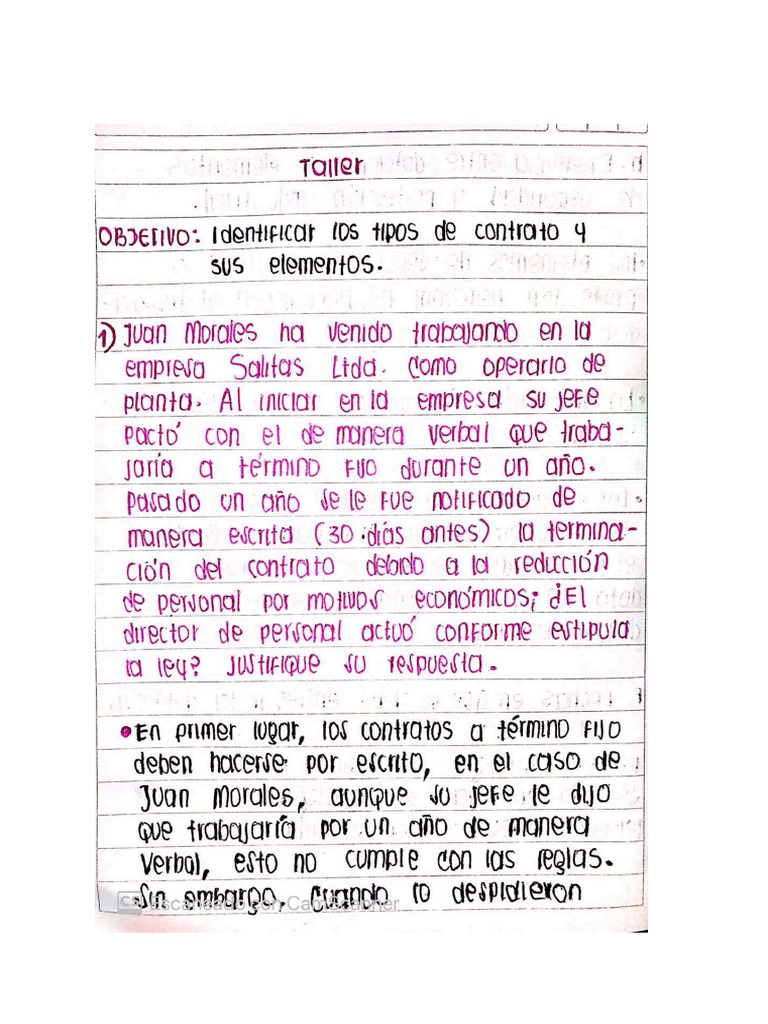 Taller
OBJETIVO: Identificar los tipos de contrato y
sus elementos.
1) Juan Morales ha venido trabajando en la
empresa Salitas Ltda. Como operario de
planta. Al iniciar en la empresa su jefe
pactó con el de manera verbal que traba-
jaría a término fijo durante un año.
Pasado un año se le fue notificado de
manera escrita (30 días antes) la termina-
ción del contrato debido a la reducción
de personal por motivos económicos; ¿El
director de personal actuó conforme estipula
la ley? Justifique su respuesta.
• En primer lugar, los contratos a término fijo
deben hacerse por escrito, en el caso de
Juan Morales, aunque su jefe le dijo
que trabajaría por un año de manera
verbal, esto no cumple con las reglas.
Sin embargo. Cuando lo despidieron
CS Escaneado con CamScanner